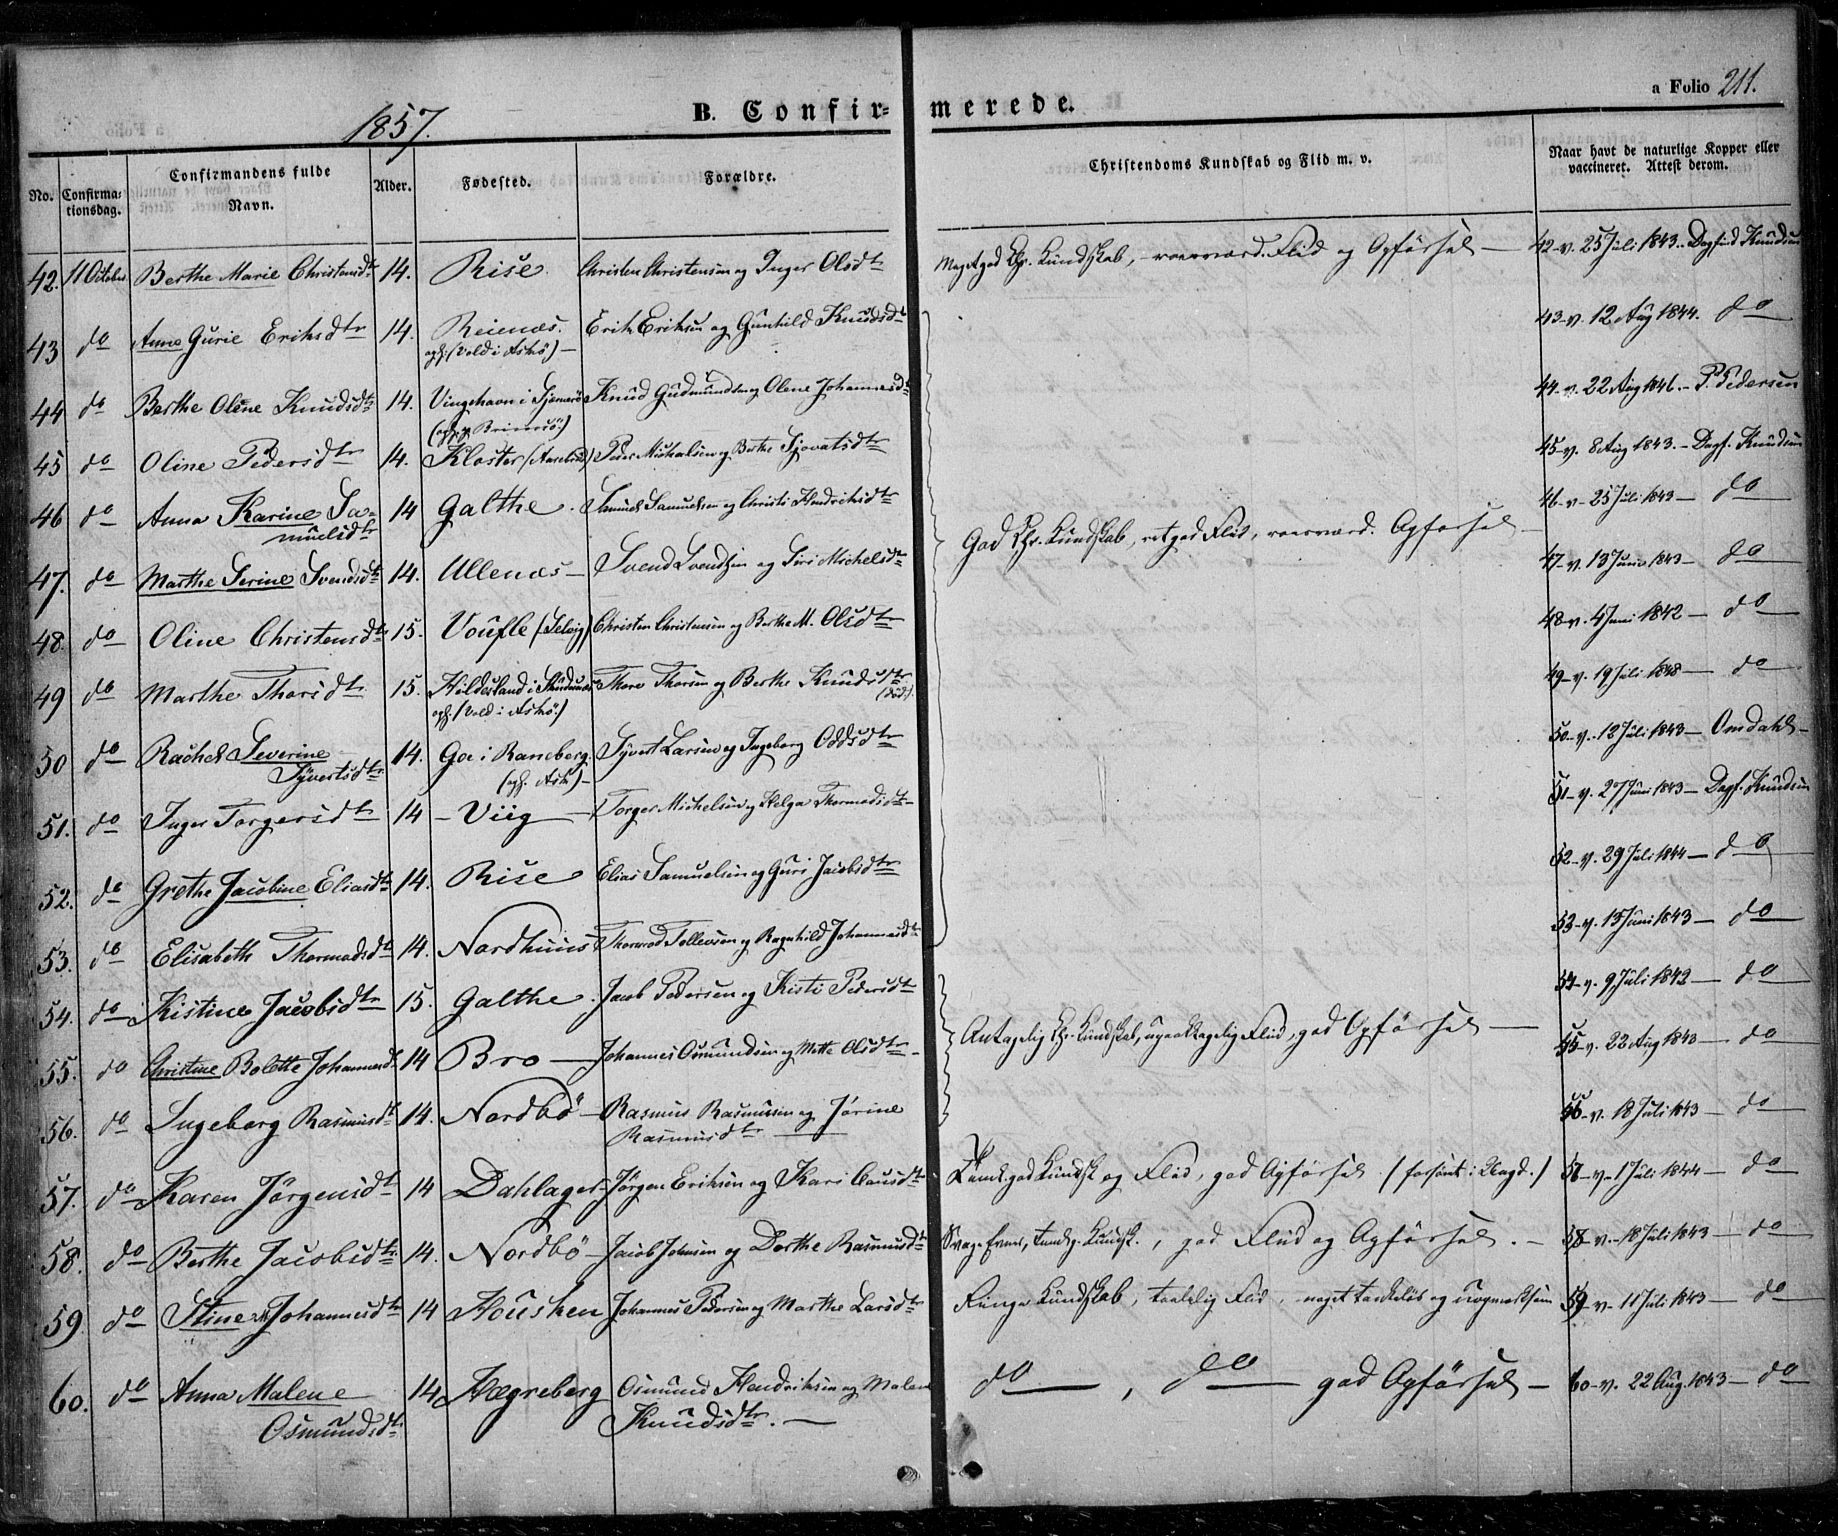 1857.
B. Confirmerede.
a Folio 211.
No.
Confirmationsdag.
Confirmandens fulde Navn.
Alder.
Fødested.
Forældre.
Christendoms Kundskab og Flid m. v.
Naar havt de naturlige Kopper eller vaccineret. Attest derom.
42. 11 October Berthe Marie Christensdtr 14. Rise. Christen Christensen og Inger Olsdtr Meget god Chr. Kundskab, roesværd. Flid og Opførsel — 42 - v. 25 Juli 1843. - Dagfind Knudsen
43 do Anne Gurie Eriksdtr 14. Reienæs. Erik Eriksen og Gunhild Knudsdtr 43 - v. 12 Aug 1844. do
oph. (Vold i Askø) —
44 do Berthe Oline Knudsdtr 14. Vingehavn i Sjernerø Knud Gudmundsen og Olene Johannesdtr 44 - v. 22 Aug 1846. - P. Pedersen
(oph. p. Brimsø)
45 do Oline Pedersdtr 14. Kloster Peder Michalsen og Berthe Sjovatsdtr 45 - v. 8 Aug 1843. - Dagf. Knudsen
46 do Anna Karine Samuelsdtr 14 Galthe. Samuel Samuelsen og Christi Hendriksdtr God Chr. Kundskab, ret god Flid, roesværd. Opførsel — 46 - v. 25 Juli 1843 — do
47. do Marthe Serine Svendsdtr 14. Ullenæs — Svend Svendsen og Siri Michelsdtr 47 - v. 13 Juni 1843 — do
48. do Oline Christensdtr 15. Voufle (Selvig) Christen Christensen og Berthe M. Olsdtr 48 - v. 4 Juni 1842 — do
49 do Marthe Thorsdtr 15. Hildesland i Skudenæs Thore Thorsen og Berthe Knudsdtr (død). 49 - v. 19 Juli 1848 — do
oph. (Vold i Askø.)
50 do Rachel Severine Syvertsdtr 14. Goe i Randeberg. Syvert Larsen og Ingeborg Oddsdtr 50 - v. 12 Juli 1843 — Omdahl —
(oph. Ask) —
51. do Inger Torgersdtr 14 — Viig — Torger Michelsen og Helga Thormodsdtr 51 - v. 27 Juni 1843 — Dagf. Knudsen
52. do Grethe Jacobine Eliasdtr 14. Rise Elias Samuelsen og Guri Jacobsdtr 52 - v. 29 Juli 1844 — do
53. do Elisabeth Thormodsdtr 14. Nordhuus Thormod Tollevsen og Ragnhild Johannesdtr 53 - v. 13 Juni 1843 — do
54. do Kistine Jacobsdtr 15. Galthe. Jacob Pedersen og Kisti Pedersdtr 54 - v. 9 Juli 1842 — do
55. do Christine Bolette Johannesdtr 14 Bro — Johannes Osmundsen og Mette Olsdtr — Antagelig Chr. Kundskab, upaaklagelig Flid, god Opførsel — 55 - v. 22 Aug 1843 — do
56. do Ingeborg Rasmusdtr 14. Nordbø — Rasmus Rasmussen og Jørine Rasmusdtr — 56 - v. 18 Juli 1843 — do
57. do Karen Jørgensdtr 14 Dahlager — Jørgen Eriksen og Kari dtr god Kundsk og Flid, god Opførsel 57 - v. 1 Juli 1844 — do
58. do Berthe Jacobsdtr 14. Nordbø — Jacob Johnsen og Dorthe Rasmusdtr Svage Evner, Kundsk., god Flid og Opførsel. — 58 - v. 18 Juli 1843 — do
59 do Stine Johannesdtr 14 Houshen Johannes Pedersen og Marthe Larsdtr Ringe Kundskab, taalelig Flid, noget tankeløs og uopmærksom 59 - v. 11 Juli 1843 — do
60. do Anna Malene Osmundsdtr 14 Hægreberg Osmund Hendriksen og Malene Knudsdtr. — do —, do — god Opførsel — 60 - v. 22 Aug. 1843 — do